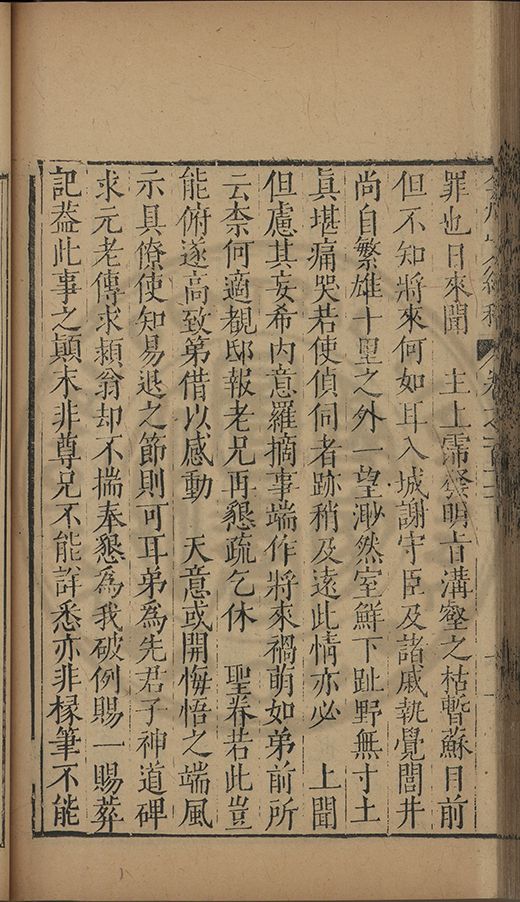 罪也日來聞　主上霈發明旨溝壑之枯暫蘇日前
但不知將來何如耳入城謝守臣及諸戚執覺閭井
尚自繁雄十里之外一望渺然室鮮下趾野無寸土
眞堪痛哭若使偵伺者跡稍及遠此情亦必　上聞
但慮其妄希內意羅摘事端作將來禍萌如弟前所
云柰何適觀邸報老兄再懇疏乞休　聖眷若此豈
能俯遂高致第借以感動　天意或開悔悟之端風
示具僚使知易退之節則可耳弟為先君子神道碑
求元老傳求潁翁却不揣奉懇為我破例賜一賜葬
記葢此事之顛末非尊兄不能詳悉亦非椽筆不能